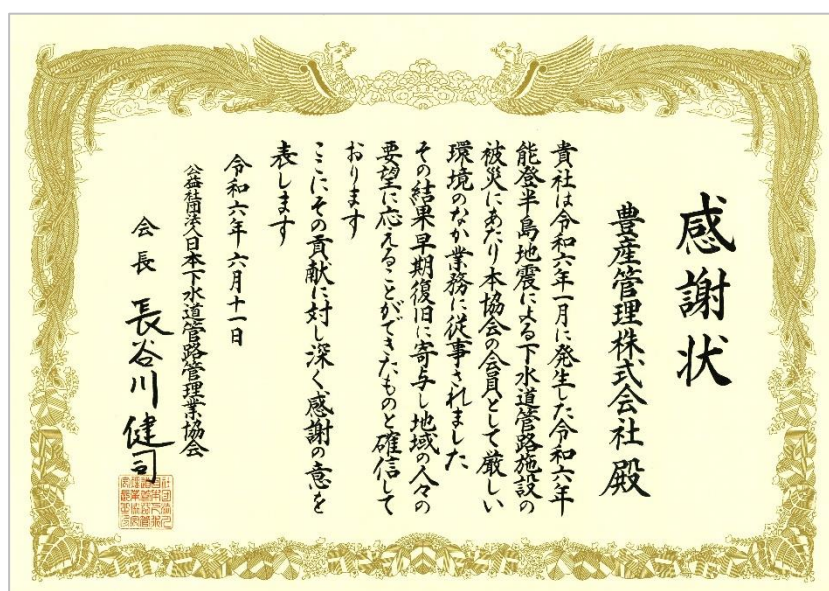 感謝状
豊産管理株式会社 殿
貴社は令和六年一月に発生した令和六年
能登半島地震による下水道管路施設の
被災にあたり本協会の会員として厳しい
環境のなか業務に従事されました
その結果早期復旧に寄与し地域の人々の
要望に応えることができたものと確信して
おります
ここにその貢献に対し深く感謝の意を
表します
令和六年六月十一日
公益社団法人日本下水道管路管理業協会
会長 長谷川健司